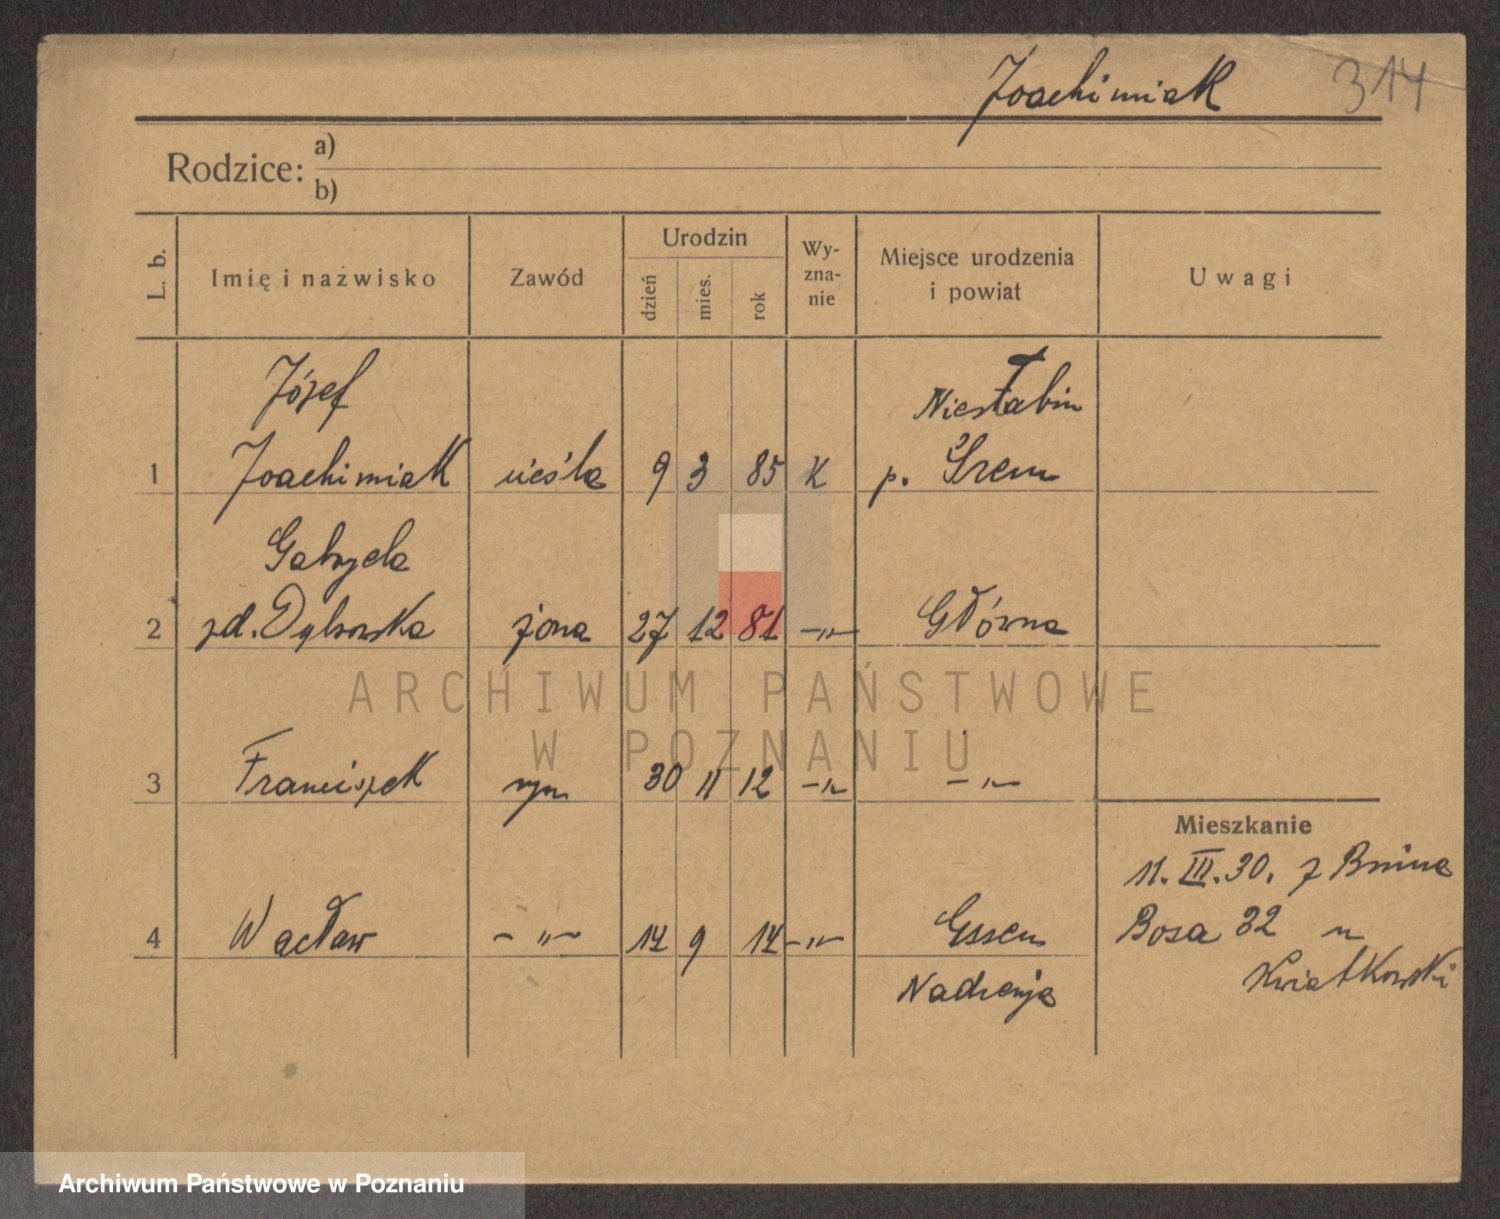 Joachimiak 314
Rodzice: a)
b)
L. b. Imię i nazwisko Zawód Urodzin dzień mies. rok Wy-zna-nie Miejsce urodzenia i powiat Uwagi
Józef Niesłabin
1 Joachimiak cieśla 9 3 85 K p. Śrem
Gabryela
2 zd. Dąbrowska żona 27 12 81 -„- Główna
ARCHIWUM PAŃSTWOWE
W POZNANIU
3 Franciszek syn 30 11 12 -„- -„-
Mieszkanie
11. III. 30. z Bnina
4 Wacław -„- 14 9 14 -„- Essen
Bosa 32 u
Kwiatkowski
Nadrenja
Archiwum Państwowe w Poznaniu